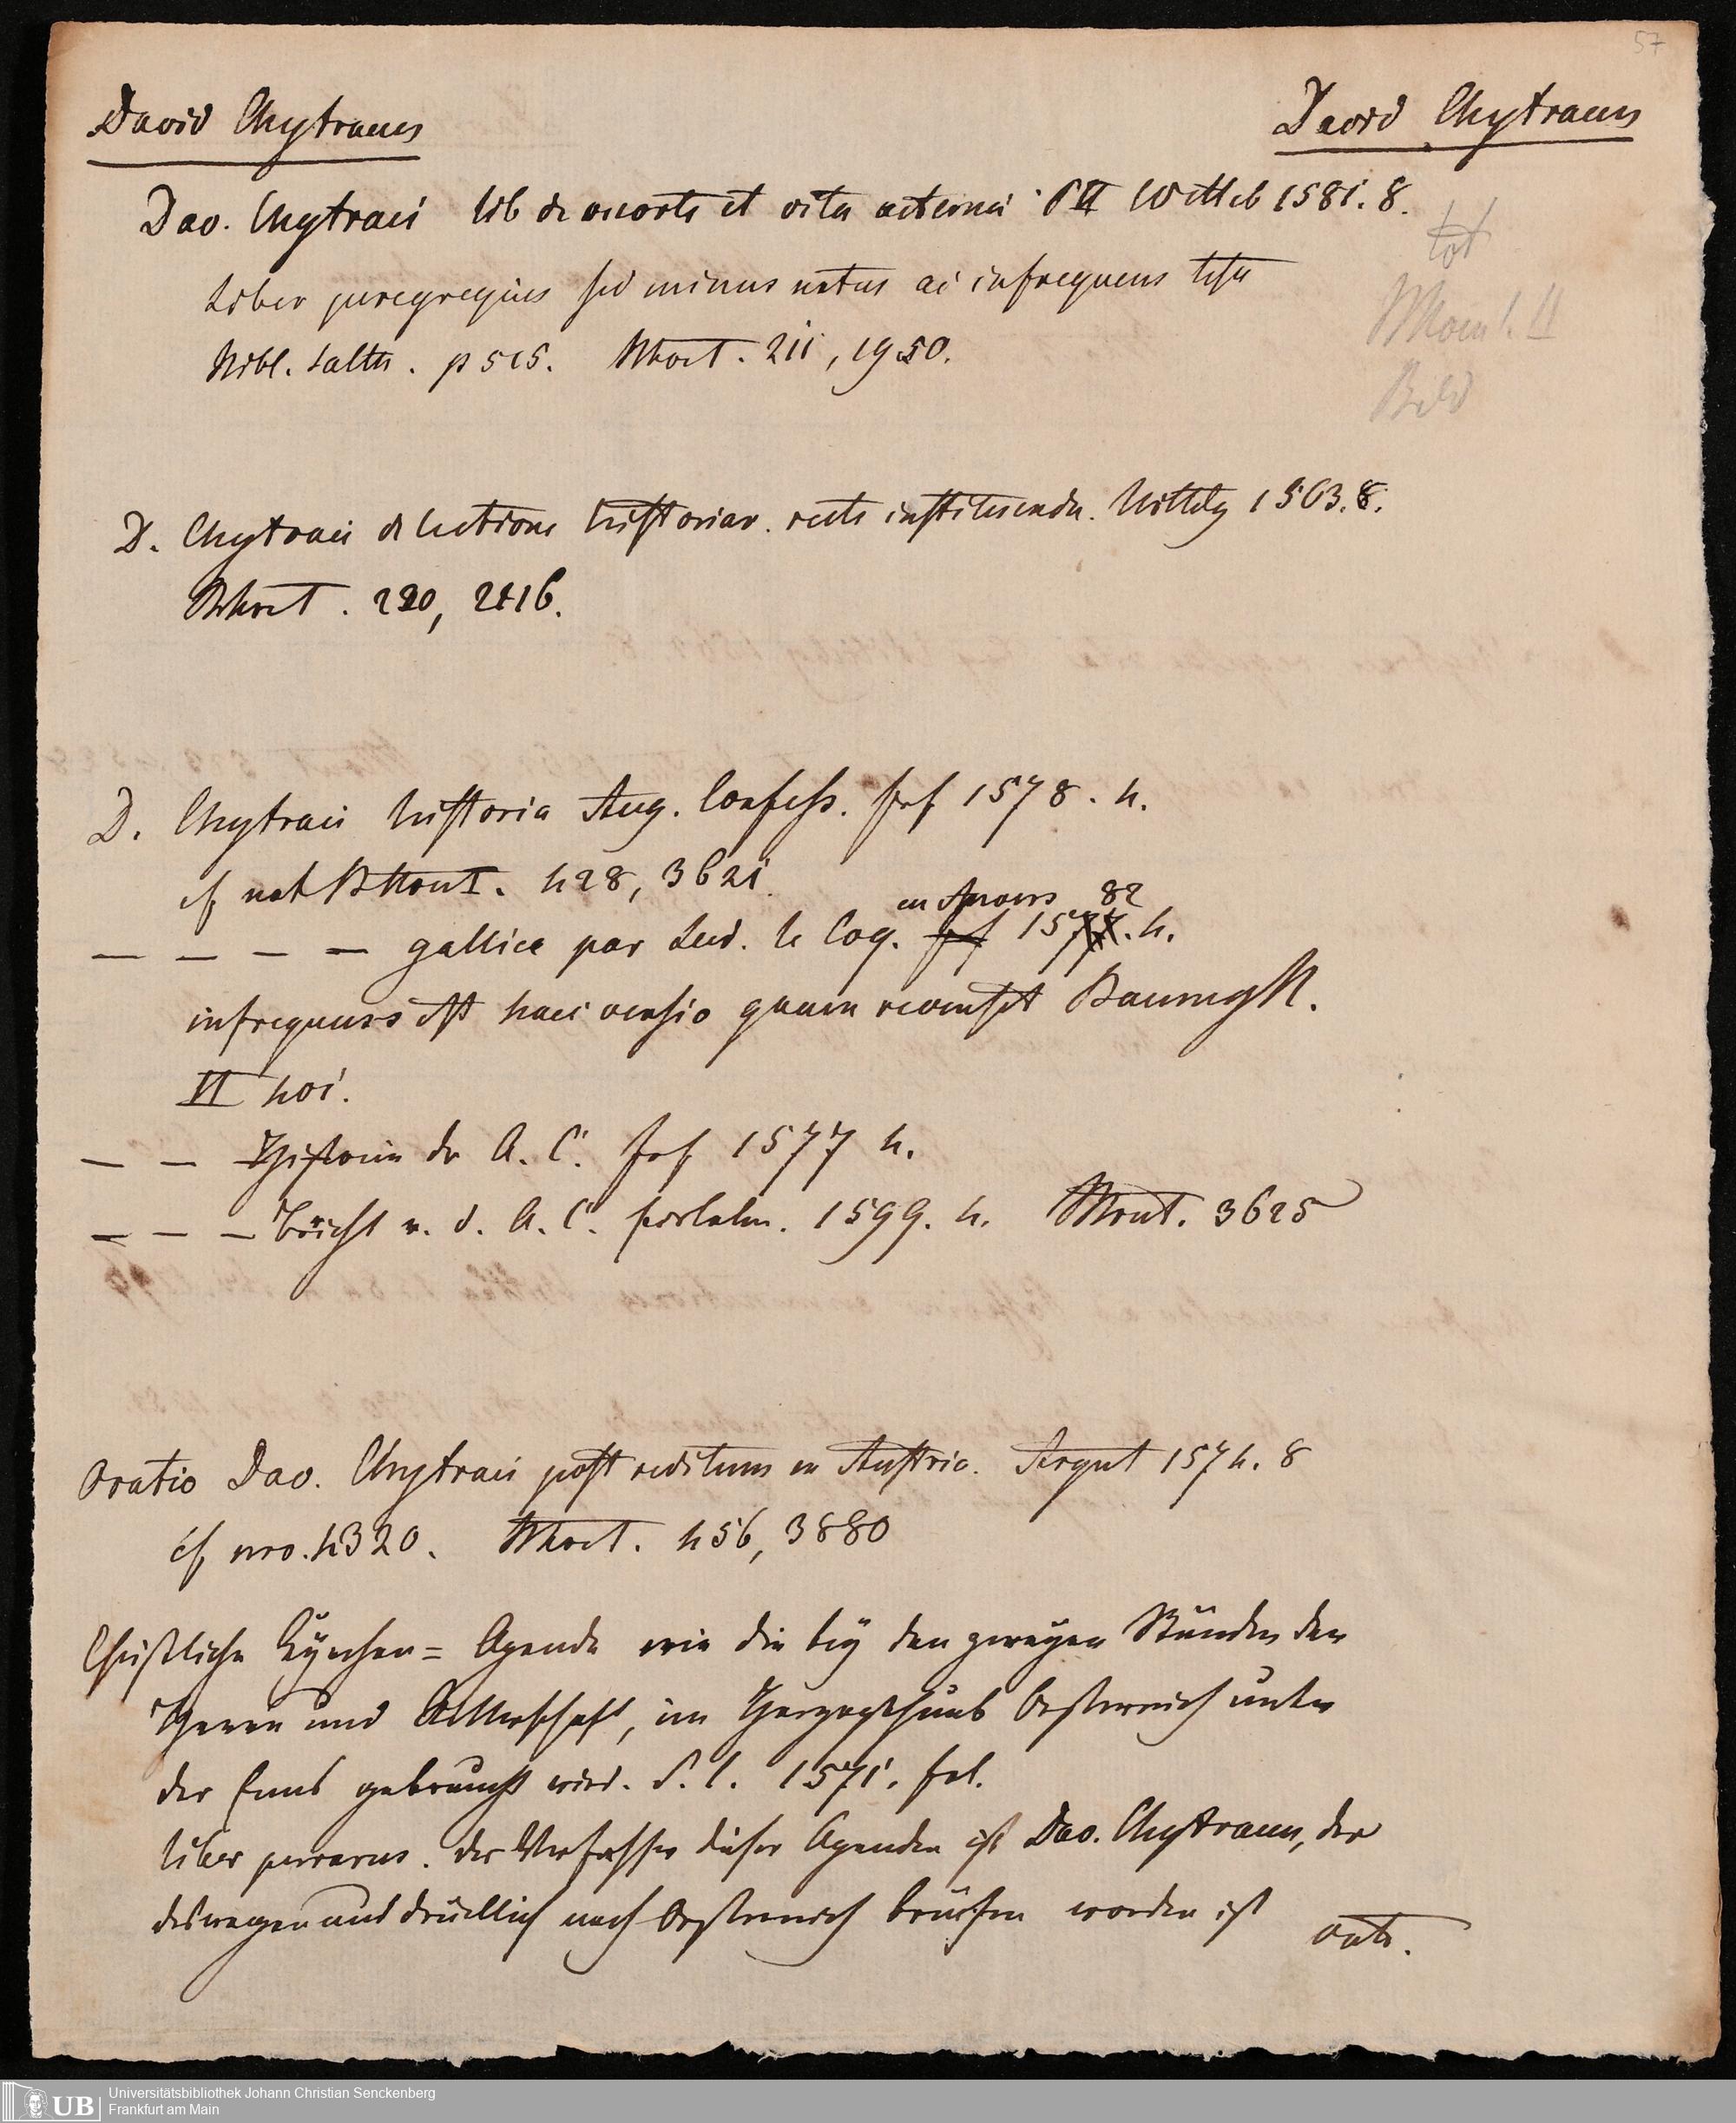 57
David Chytraeus
David Chytraeus
Dav. Chytraei lib de morte et vita aeterna P II Witteb 1581. 8.
tot
Liber peregregius sed minus notus ac infrequens teste
Bibl. Salth. p 515. 211, 1950.
Bild
D. Chytraei de lectione historiar. recte instituenda. Wittebg 1563. 8.
220, 2416.
D. Chytraei historia Aug. Confess. Frf 1578. 4.
cf not 428, 3621.
en Anvers 82
— — — — gallice par Luc. le Coq. Frf 15 . 4.
infrequens est haec versio quam recenset Baumgt.
VI 401.
— — Historia der A. C. Frf 1577 4.
— — — Bericht v. d. A. C. 1599. 4. 3625
Oratio Dav. Chytraei post reditum ex Austria. Argent 1574. 8
cf nro. 4320. 456, 3880
Christliche Kyrchen= Agenda wie die bey den zweyen Ständen der
Herrn und Ritterschaft, im Herzogthumb Oesterreich unter
der Enns gebraucht wird. S. l. 1571. fol.
liber perrarus. der Verfasser dieser Agenden ist Dav. Chytraeus, der
deswegen ausdrücklich nach Oesterreich berufen worden ist
vate.
Universitätsbibliothek Johann Christian Senckenberg
UB Frankfurt am Main